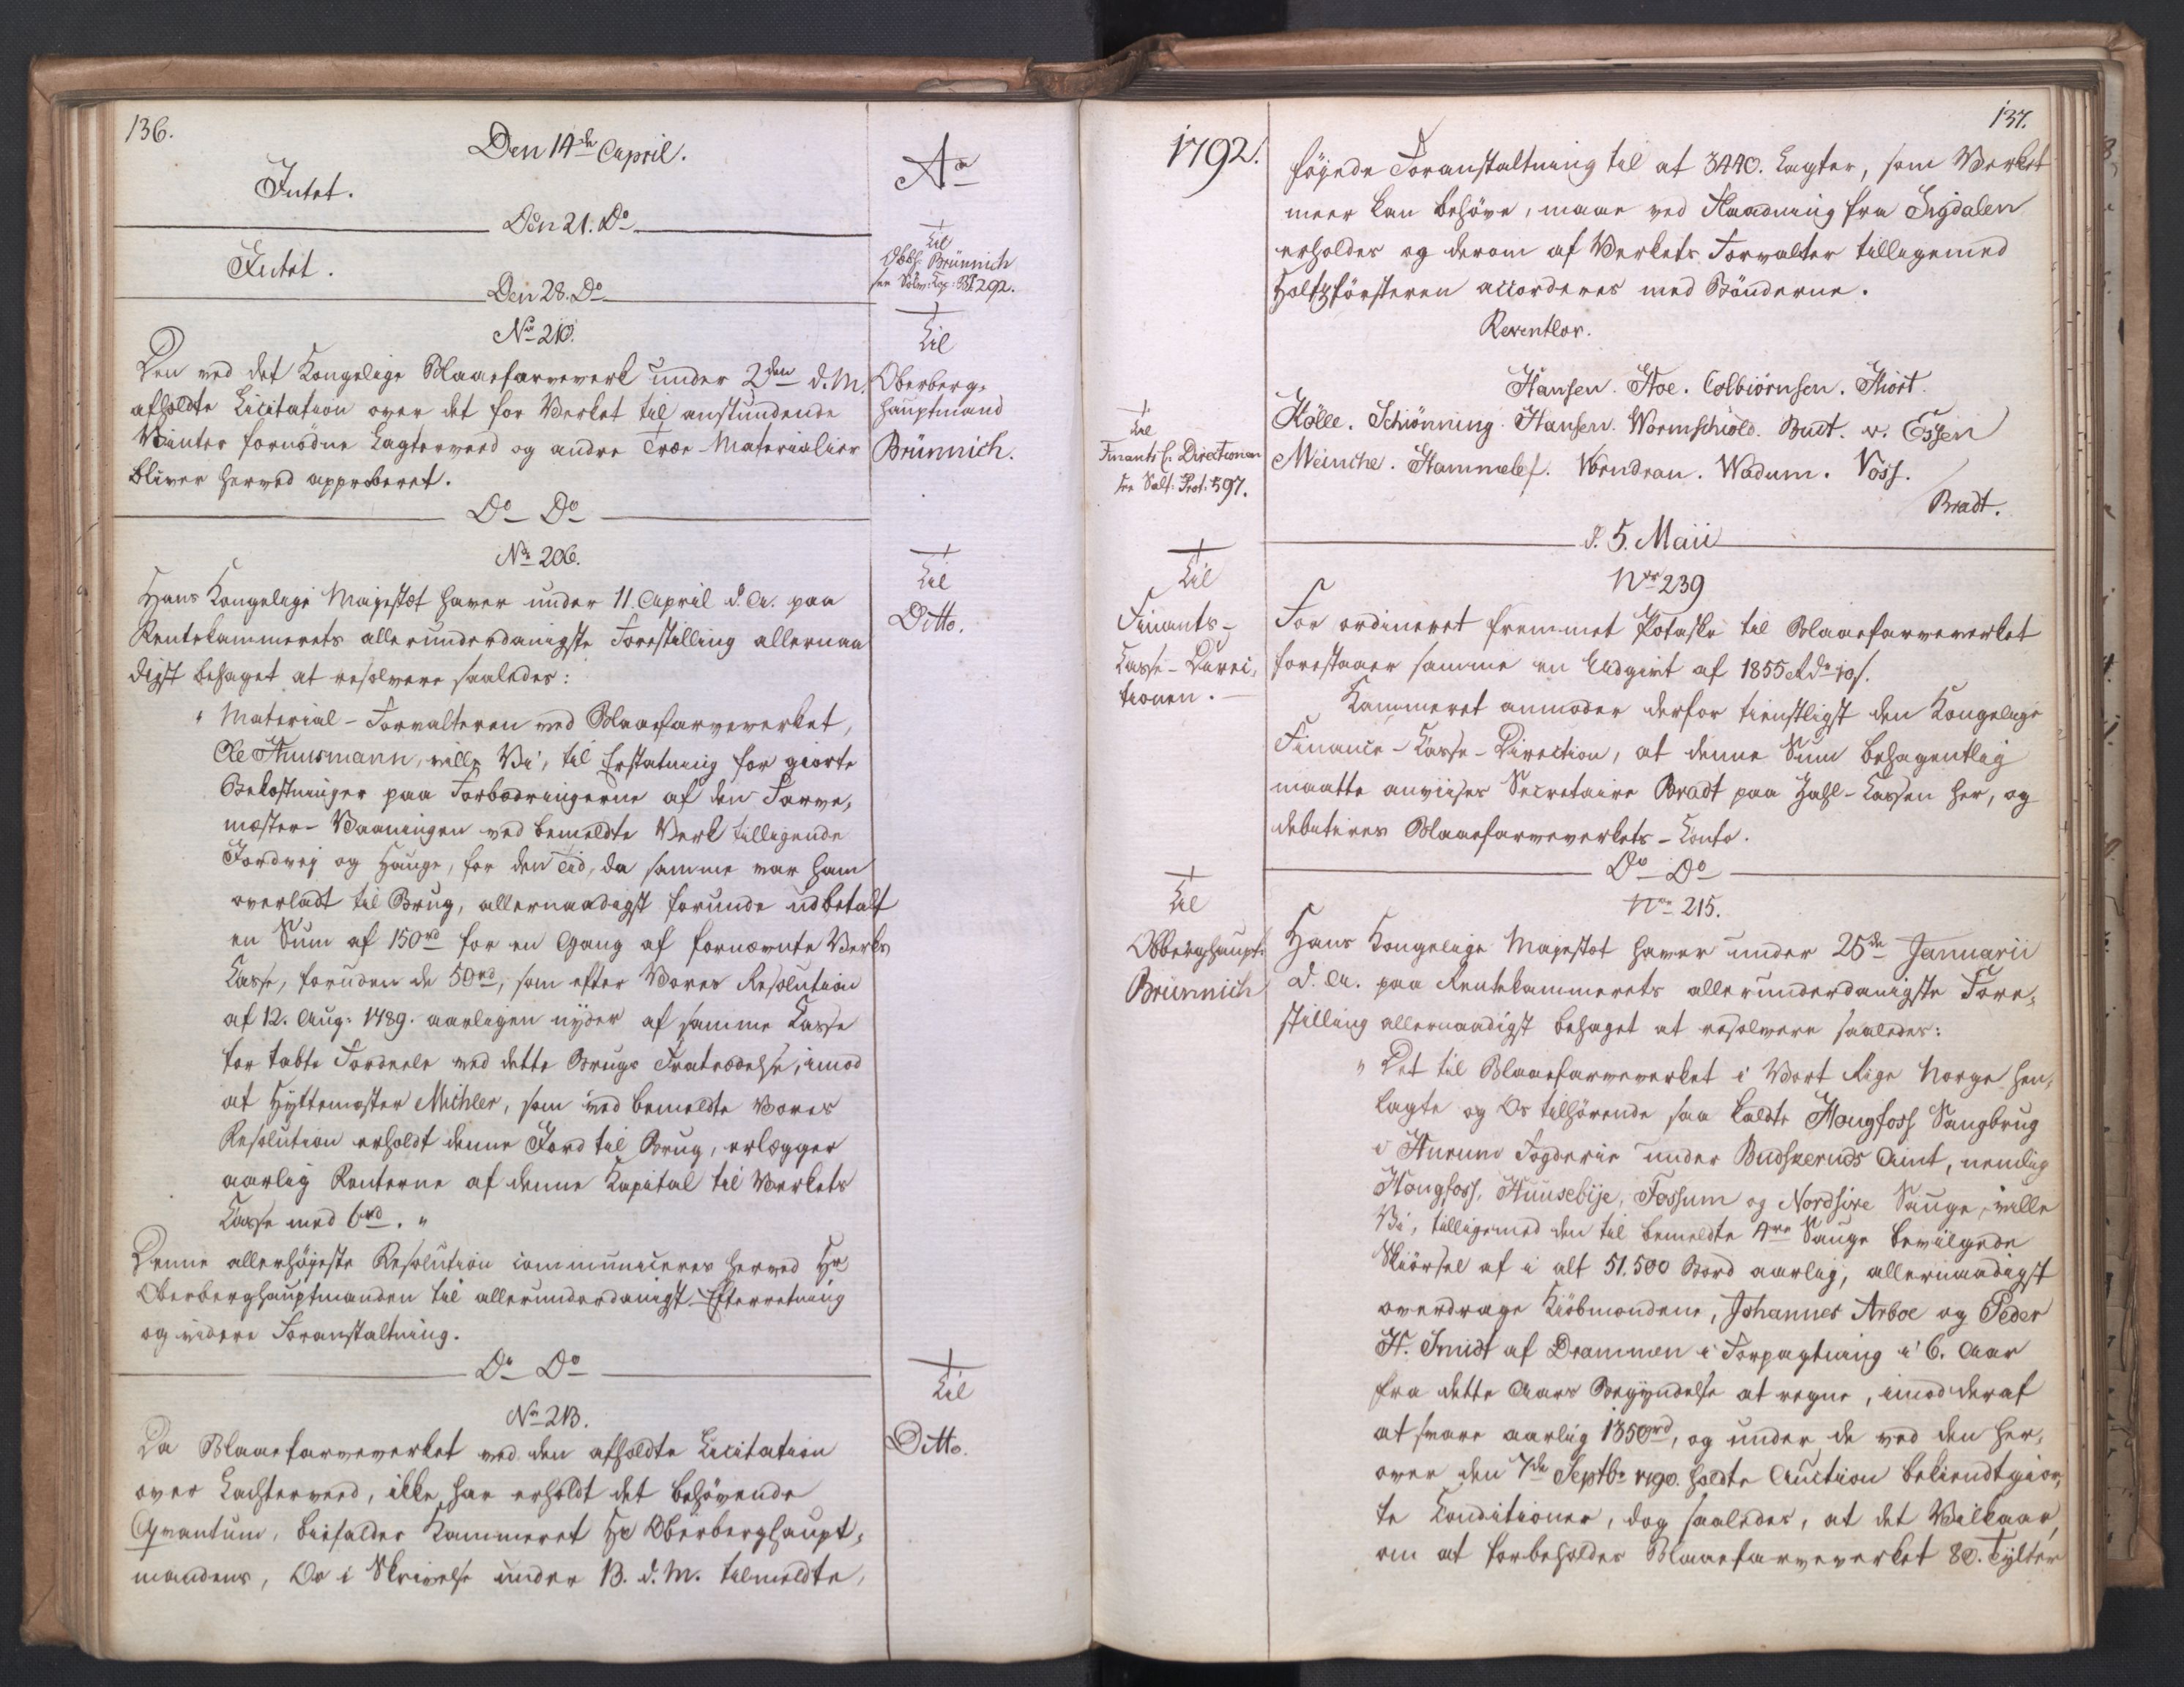 136.
Den 14de April.
Intet.
Den 21. Do
Intet.
Den 28. Do
No 210.
Den ved det Kongelige Blaaefarveverk under 2den d. M.
afholdte Licitation over det for Verket til anstundende
Vinter fornødne Lagterveed og andre Træe-Materialier
bliver herved approberet.
Do Do
No 206.
Hans Kongelige Majestet haver under 11. April d. A. paa
Rentekammerets allerunderdanigste Forestilling allernaa
digst behaget at resolvere saaledes:
" Material-Forvalteren ved Blaaefarveverket,
Ole Thuusmann, ville Vi, til Erstatning for giorte
Bekostninger paa Forbedringerne af den Farve,
mester-Vaaningen ved bemeldte Verk tilligende
Jordvej og Hauge, for den Tid, da samme var ham
overladt til Brug, allernaadigst forunde udbetalt
en Sum af 150rd for en Gang af fornævnte Verks
Casse, foruden de 50rd, som efter Vores Resolution
af 12. Aug: 1789. aarligen nyder af samme Casse
for tabte Fordeele ved dette Brugs Fratrædelse, imod
at Hyttemester Michler, som ved bemeldte Vores
Resolution erholdt denne Jord til Brug, erlægger
aarlig Renterne af denne Kapital til Verkets
Casse med 6rd. "
Denne allerhøjeste Resolution communiceres herved Hr
Oberberghauptmanden til allerunderdanigst Efterretning
og videre Foranstaltning.
Do Do
No 213.
Da Blaaefarveverket ved den afholdte Licitation
over Lachterveed, ikke har erholdt det behøvende
Qvantum, bifalder Kammeret Hr Oberberghaupt,
mandens, Os i Skrivelse under 13. d. M. tilmeldte,
Ao
Til
Obbh. Brünnich
see Sølv: Cop: B: 292.
Til
Oberberg,
hauptmand
Brünnich.
Til
Ditto.
Til
Ditto.
1792.
Til
Finants C. Directionen
see Salt: Prot: 597.
Til
Finants-
Casse-Direc,
tionen.
Til
Obberghaupt:
Brünnich
137.
føjede Foranstaltning til at 3440. Lagter, som Verket
meer kan behøve, maae ved Flaadning fra Sigdalen
erholdes og derom af Verkets Forvalter tilligemed
Holtzførsteren accorderes med Bønderne.
Reventlov.
Hansen. Hoe. Colbiørnsen. Hiort.
Kölle. Schiønning. Hansen. Wormschiold. Budt. v. Essen
Meincke. Hammelef. Wendran. Wadum. Voss.
Bradt.
d. 5. Maii
No 239
For ordineret fremmet Potaske til Blaaefarveverket
forestaaer samme en Udgivt af 1855 Rdr 10 s.
Kammeret anmoder derfor tienstligst den Kongelige
Finance-Casse-Direction, at denne Sum behagentlig
maatte anviises Secretaire Bradt paa Zahl-Cassen her, og
debiteres Blaaefarveverkets-Conto.
Do Do
No 215.
Hans Kongelige Majestet haver under 25de Januarii
d. A. paa Rentekammerets allerunderdanigste Fore,
stilling allernaadigst behaget at resolvere saaledes:
" Det til Blaaefarveverket i Vort Rige Norge hen,
lagte og Os tilhørende saa kaldte Hougfoss Saugbrug
i Hurum Fogderie under Budskeruds Amt, nemlig
Hougfoss, Huusebije, Fossum og Nordsire Sauge, ville
Vi, tilligemed den til bemeldte 4re Sauge bevilgede
Skiørsel af i alt 51.500 Bord aarlig, allernaadigst
overdrage Kiøbmændene, Johannes Arboe og Peder
H. Smidt af Drammen i Forpagtning i 6. Aar
fra dette Aars Begyndelse at regne, imod deraf
at svare aarlig 1350rd, og under de ved den her,
over den 7de Septbr 1790. holdte Auction bekiendtgior,
te Conditioner, dog saaledes, at det Vilkaar,
om at forbeholdes Blaaefarveverket 80. Tylter